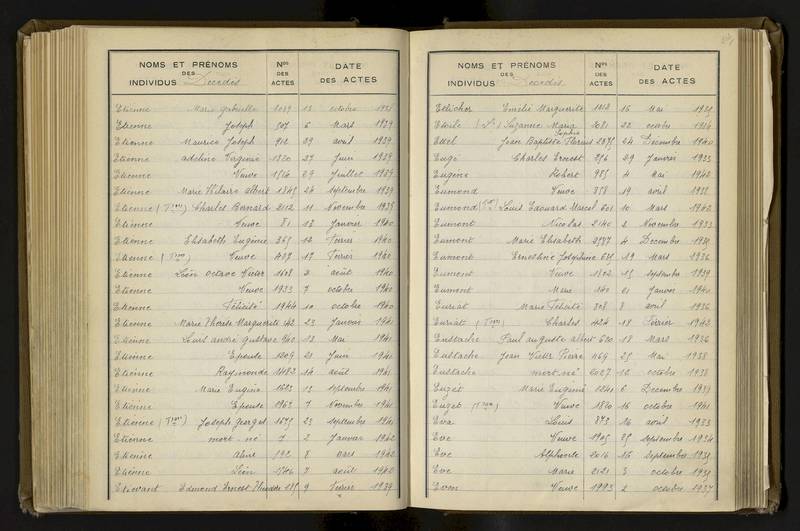 NOMS ET PRÉNOMS
DES
INDIVIDUS Décédés
Nos
DES
ACTES
DATE
DES ACTES
Etienne Marie Gabrielle 13 octobre 1938
Etienne Joseph 507 6 Mars 1939
Etienne Maurice Joseph 912 29 avril 1939
Etienne adeline Virginie 27 Juin 1939
Etienne Veuve 29 Juillet 1939
Etienne Marie Hilaire albert 24 septembre 1939
Etienne Charles Bernard 2112 11 Novembre 1939
Etienne Veuve 81 13 Janvier 1940
Etienne Elisabeth Eugénie 365 12 Fevrier 1940
Etienne Veuve 407 17 Fevrier 1940
Etienne Léon octave Victor 1608 2 août 1940
Etienne Veuve 1933 7 octobre 1940
Etienne Félicité 1944 10 octobre 1940
Etienne Marie Thérèse Marguerite 142 23 Janvier 1941
Etienne Louis andré gustave 940 13 Mai 1941
Etienne Epouse 1209 21 Juin 1941
Etienne Raymonde 1483 14 août 1941
Etienne Marie Eugénie 1623 13 septembre 1941
Etienne Epouse 1963 7 Novembre 1941
Etienne Joseph Georges 1675 23 septembre 1941
Etienne mort-né 7 2 Janvier 1942
Etienne 592 8 mars 1942
Etienne Léon 1706 7 août 1940
Etievant Edmond Ernest 9 Fevrier 1939
NOMS ET PRÉNOMS
DES
INDIVIDUS Décédés
Nos
DES
ACTES
DATE
DES ACTES
Etlicher Emélie Marguerite 1012 16 Mai 1939
Etoile Suzanne Maria 2081 22 octobre 1936
Sophie
Ettel Jean Baptiste 24 Decembre 1940
Eugé Charles Ernest 276 29 Janvier 1933
Eugène Robert 985 4 Mai 1942
Eumond Veuve 858 19 avril 1938
Eumond Louis Edouard Marcel 601 10 Mars 1942
Eumont Nicolas 2140 2 Novembre 1933
Eumont Marie Elisabeth 2337 4 Decembre 1939
Eumont Ernestine Joséphine 631 19 Mars 1936
Eumont Veuve 1802 15 septembre 1939
Eumont Marie 140 21 Janvier 1940
Euriat Marie Félicité 808 8 avril 1936
Euriat Charles 424 18 Fevrier 1942
Eustache Paul auguste albert 620 18 Mars 1936
Eustache Jean Victor Pierre 1169 25 Mai 1938
Eustache mort-né 2027 12 octobre 1938
Euzet Marie Eugénie 2241 6 Decembre 1937
Euzet Veuve 1820 16 octobre 1941
Eva Louis 873 16 avril 1933
Eve Veuve 1905 25 septembre 1934
Eve Alphonse 2016 16 septembre 1939
Eve Marie 2121 3 octobre 1939
Evon Veuve 1993 2 octobre 1937